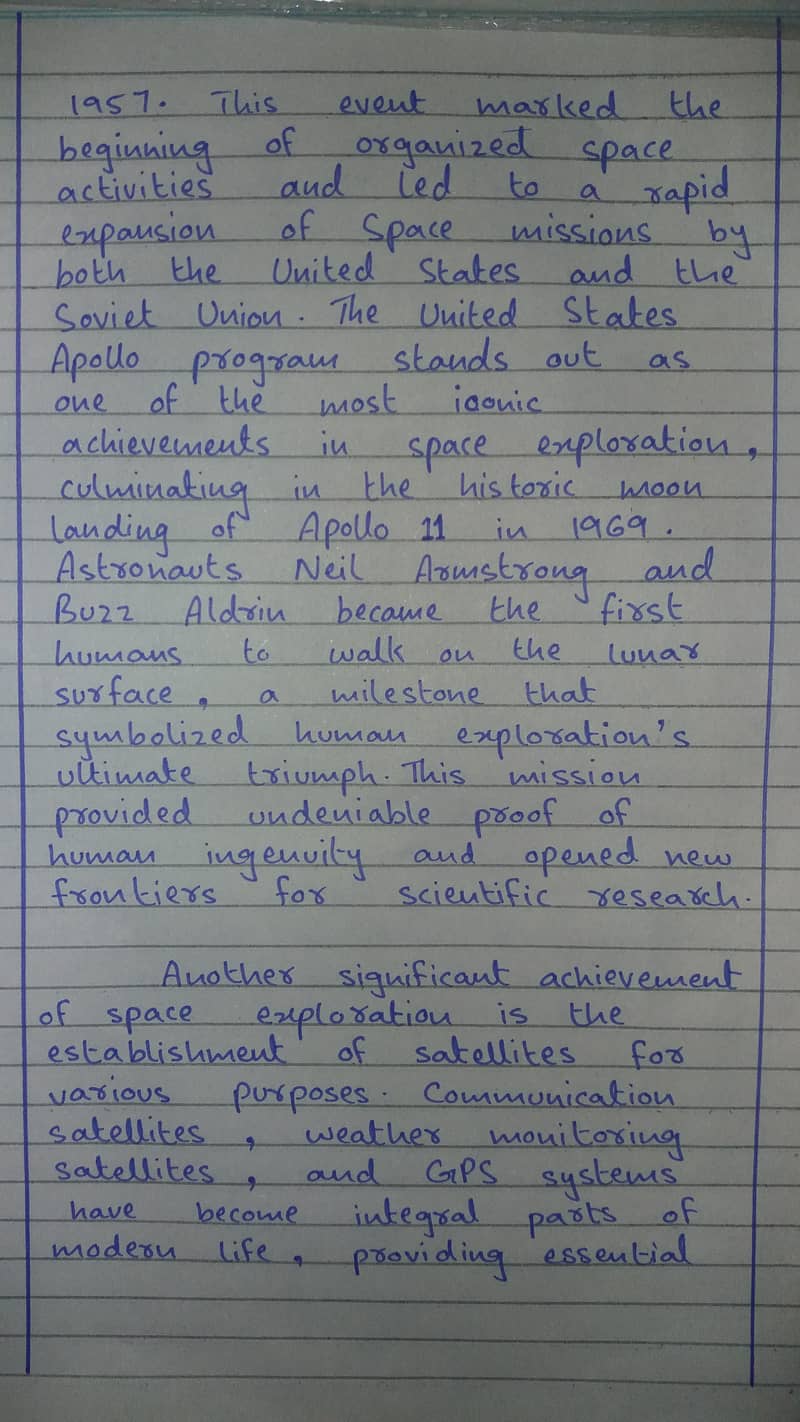 1957. This event marked the
beginning of organized space
activities and led to a rapid
expansion of Space missions by
both the United States and the
Soviet Union. The United States
Apollo program stands out as
one of the most iconic
achievements in space exploration,
culminating in the historic moon
landing of Apollo 11 in 1969.
Astronauts Neil Armstrong and
Buzz Aldrin became the first
humans to walk on the lunar
surface, a milestone that
symbolized human exploration's
ultimate triumph. This mission
provided undeniable proof of
human ingenuity and opened new
frontiers for scientific research.
Another significant achievement
of space exploration is the
establishment of satellites for
various purposes. Communication
satellites, weather monitoring
satellites, and GPS systems
have become integral parts of
modern life, providing essential